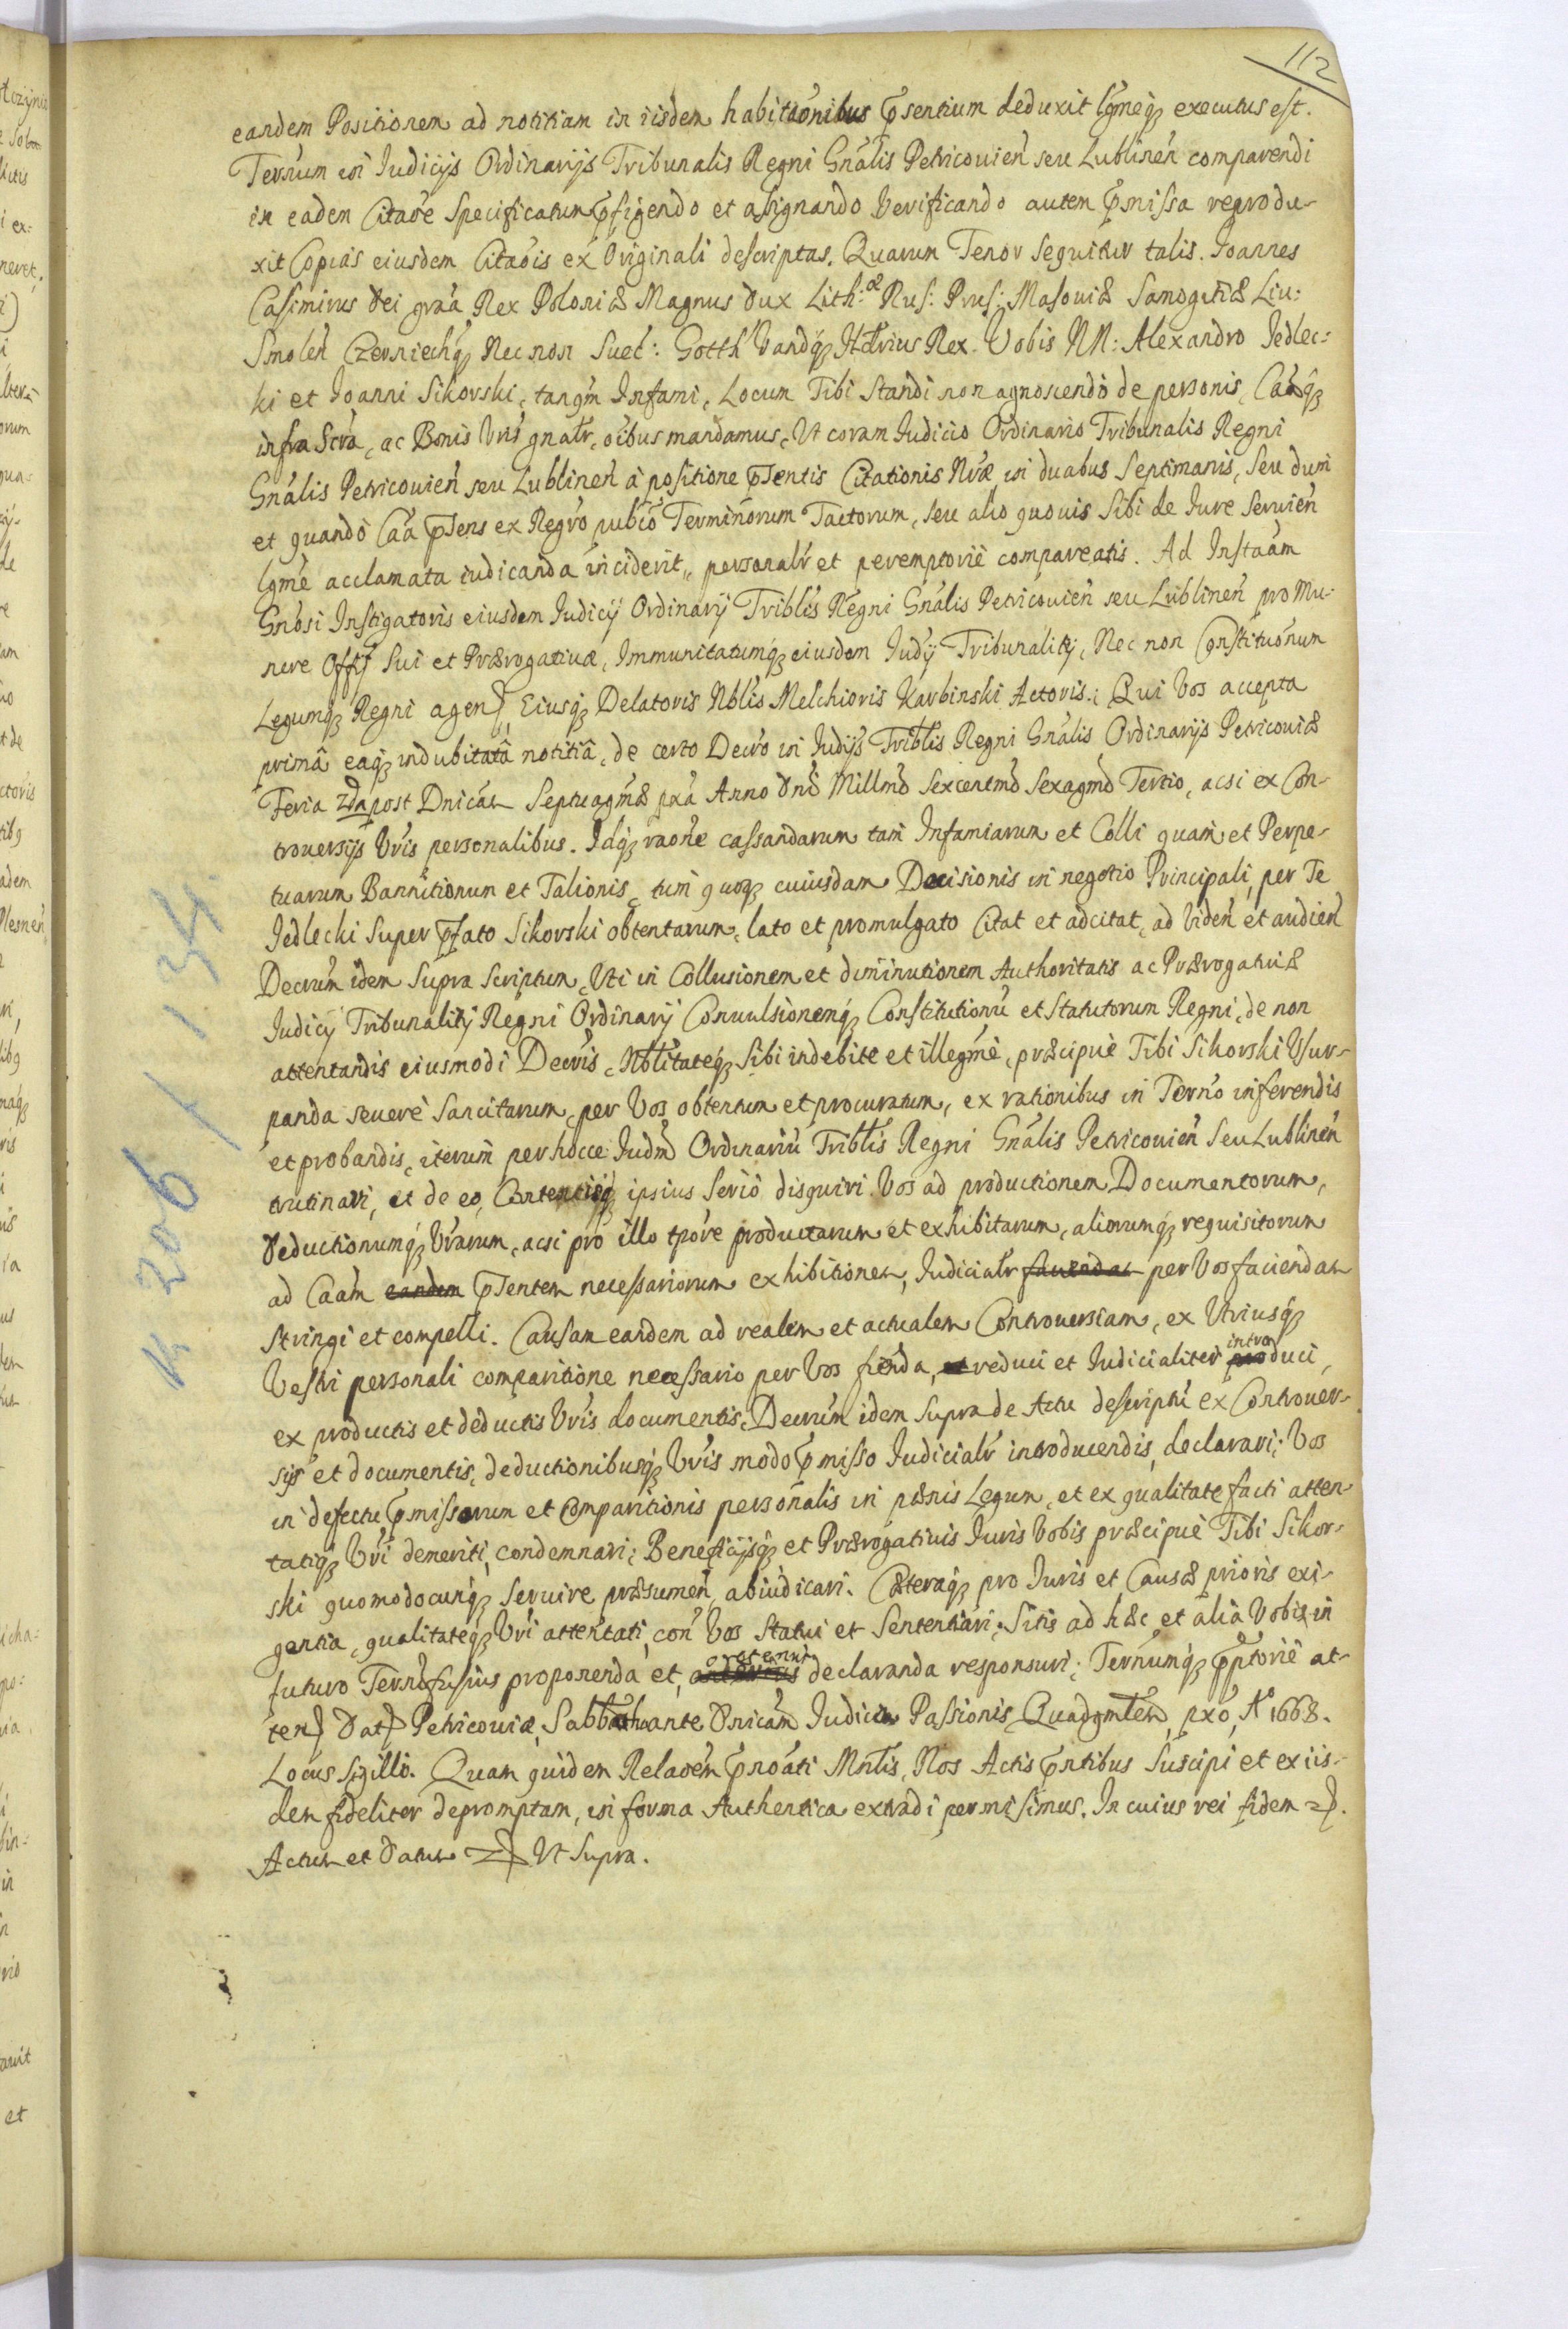 112
eandem Positionem ad notitiam in iisdem habitaōnibus p̄sentium deduxit lg̃meq₃ executus est.
Terñum in Iudicijs Ordinarijs Tribunalis Regni Gñalis Petricouień seu Lublineń comparendi
in eadem Citaōe Specificatum p̄figendo et assignando Verificando autem p̄missa reprodu-
xit Copias eiusdem Citaōis ex Originali descriptas. Quarum Tenor sequitur talis. Joannes
Casimirus Dei graā Rex Poloniæ Magnus Dux Lith: Rus: Prus: Masouiæ Samogitiæ Liu:
Smoleń Czerniechq₃ Nec non Suec: Gotth Vandq₃ Hædrius Rex. Vobis NN: Alexandro Jedlec-
ki et Joanni Sikorski, tanqm̃ Infami, Locum Tibi Standi non agnoscendo de personis, Caāq₃
infra Scrā, ac Bonis Vris gñalr, oibus mandamus, Vt coram Iudicio Ordinario Tribunalis Regni
Gñalis Petricouień seu Lublineń à positione p̄sentis Citationis Nræ, in duabus Septimanis, seu dum
et quandò Caā p̄sens ex Regrō publcō Terminorum Tactorum, seu alio quouis Sibi de Iure Seruień
lg̃mè acclamata iudicanda inciderit, personalr et peremptoriè compareatis. Ad Instaām
Gñosi Instigatoris eiusdem Iudicij Ordinarij Triblis Regni Gñalis Petricouień seu Lublineń pro Mu-
nere Offij Sui et Prærogatiuæ, Immunitatumq₃ eiusdem Iudij Tribunalitij, Nec non Constituōnum
Legumq₃ Regni agen), Eiusq₃ Delatoris Nblis Melchioris Karbinski Actoris; Qui Vos accepta
primâ eaq₃ indubitatâ notitiâ, de certo Decrō in Iudijs Triblis Regni Gñalis Ordinarijs Petricouiæ
Feria 2da post Dnicam Septuagmæ pxā Anno Dni Millmo Sexcentmo Sexagmo Tertio, acsi ex Con-
trouersijs Vris personalibus. Idq₃ raōne cassandarum tam Infamiarum et Colli quam et Perpe-
tuarum Bannitionum et Talionis, tum quoq₃ cuiusdam Decisionis in negotio Principali, per Te
Jedlecki Super p̄fato Sikorski obtentarum, lato et promulgato Citat et adcitat, ad Videń et audień
Decrum idem Supra Scriptum, Vti in Collusionem et diminutionem Authoritatis ac Prærogatiuæ
Iudicij Tribunalitij Regni Ordinarij Conuulsionemq₃ Constitutionū et Statutorum Regni, de non
attentandis eiusmodi Decris, Nblitateq₃ Sibi indebite et illegmè, præcipuè Tibi Sikorski Vsur-
panda seuerè Sancitarum, per Vos obtentum et procuratum, ex rationibus in Terño inferendis
et probandis, iterum per hocce Iudm Ordinariū Triblis Regni Gñalis Petricouień Seu Lublineń
trutinari, et de eo, Contentisq₃ ipsius Seriò disquiri. Vos ad productionem Documentorum,
Deductionumq₃ Vrarum, acsi pro illo tpōre productarum et exhibitarum, aliorumq₃ requisitorum
ad Caām eandem p̄sentem necessariorum exhibitionem, Iudicialr faciendam per Vos faciendam
stringi et compelli. Causam eandem ad realem et actualem Controuersiam, ex Vtriusq₃
Vestri personali comparitione necessario per Vos fienda, et reduci et Iudicialiter introduci,
ex productis et deductis Vris documentis, Decrum idem Supra de Actu descriptū ex Controuer-
sijs et documentis, deductionibusq₃ Vris modo p̄misso Iudicialr introducendis, declarari; Vos
in defectu p̄missorum et Comparitionis personalis in pænis Legum, et ex qualitate facti atten-
tatiq₃ Vri demeriti, condemnari; Beneficijsq₃ et Prærogatiuis Iuris Vobis præcipuè Tibi Sikor-
ski quomodocunq₃ Seruire præsumeń, abiudicari. Cæteraq₃ pro Iuris et Causæ prioris exi-
gentia, qualitateq₃ Vri attentati, coń Vos Statui et Sententiari; Sitis ad hæc et alia Vobis in
futuro Terño fusius proponenda, et oretenus declaranda responsuri; Terñumq₃ p̄ptoriè at-
ten) Dat) Petricouiæ, Sabbatho ante Dnicam Iudica Passionis Quadgmlem pxō, Ao 1668.
Locus Sigilli. Quam quidem Relaōem p̄noāti Mnlis, Nos Actis p̄ntibus Suscipi et ex iis-
dem fideliter depromptam, in forma Authentica extradi permisimus. In cuius rei fidem
Actum et Datum Vt Supra.
K 206 / 134.